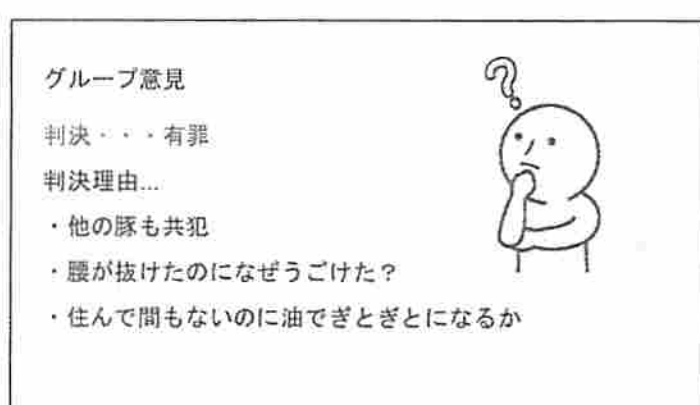 グループ意見
判決・・・有罪
判決理由...
・他の豚も共犯
・腰が抜けたのになぜうごけた？
・住んで間もないのに油でぎとぎとになるか